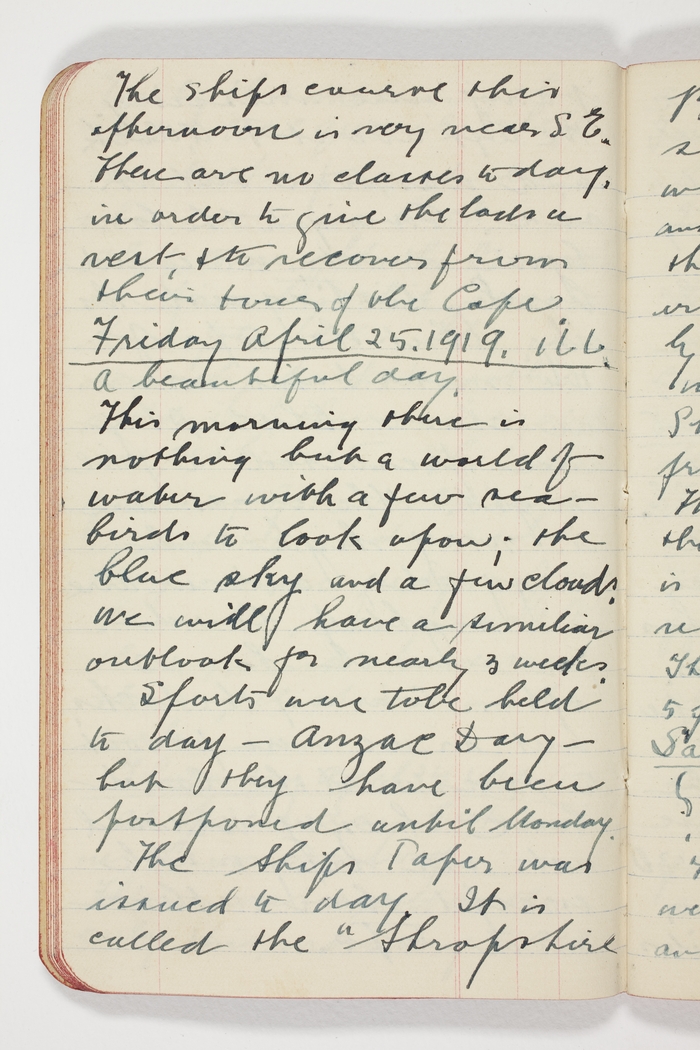 The ships course this
afternoon is very near S.E.
There are no classes to day,
in order to give the lads a
rest, & to recover from
their tour of the Cape.
Friday April 25.1919.
A beautiful day.
This morning there is
nothing but a world of
water with a few sea-
birds to look upon; the
blue sky and a few clouds.
We will have a similiar
outlook for nearly 3 weeks.
Sports were to be held
to day - Anzac Day -
but they have been
postponed until Monday.
The Ships Paper was
issued to day. It is
called the "Shropshire